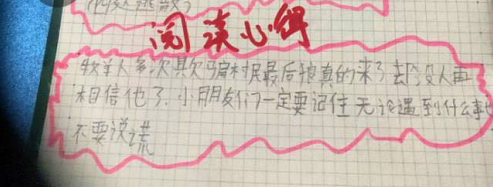 阅读心得
牧羊人多次欺骗村民最后狼真的来了却没人再
相信他了.小朋友们一定要记住无论遇到什么事
不要说谎